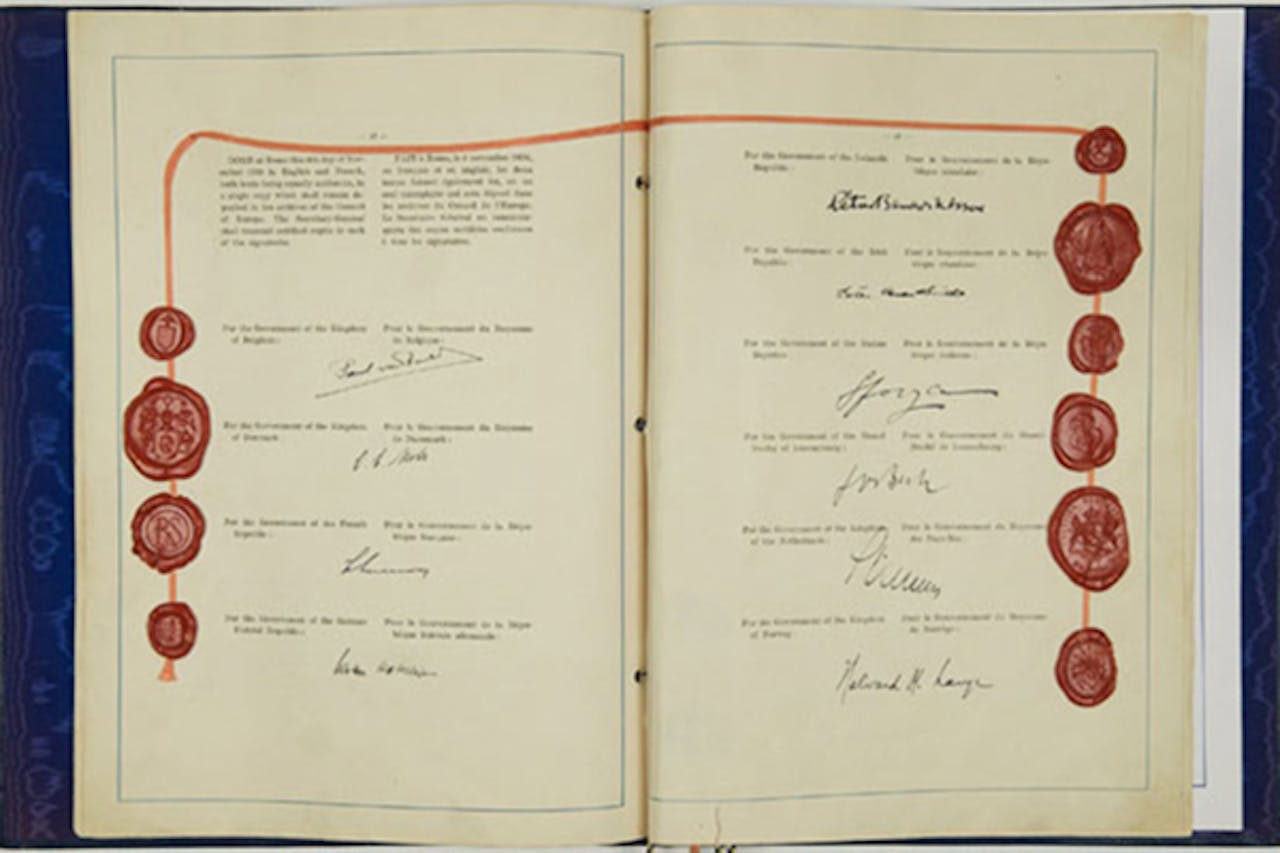 DONE at Rome this 4th day of Nov-
ember 1950 in English and French,
both texts being equally authentic, in
a single copy which shall remain de-
posited in the archives of the Council
of Europe. The Secretary-General
shall transmit certified copies to each
of the signatories.
FAIT à Rome, le 4 novembre 1950,
en français et en anglais, les deux
textes faisant également foi, en un
seul exemplaire qui sera déposé dans
les archives du Conseil de l'Europe.
Le Secrétaire Général en
copies certifiées conformes
à tous les signataires.
For the Government of the Kingdom
of Belgium:
Pour le Gouvernement du Royaume
de Belgique:
Paul van Zeeland
For the Government of the Kingdom
of Denmark:
Pour le Gouvernement du Royaume
de Danemark:
For the Government of the French
Republic:
Pour le Gouvernement de la Répu-
blique française:
For the Government of the German
Federal Republic:
Pour le Gouvernement de la Répu-
blique fédérale allemande:
RS
For the Government of the Icelandic
Republic:
Pour le Gouvernement de la Répu-
blique islandaise:
For the Government of the Irish
Republic:
Pour le Gouvernement de la Répu-
blique irlandaise:
For the Government of the Italian
Republic:
Pour le Gouvernement de la Répu-
blique italienne:
Sforza
For the Government of the Grand
Duchy of Luxembourg:
Pour le Gouvernement du Grand
Duché de Luxembourg:
Jos Bech
For the Government of the Kingdom
of the Netherlands:
Pour le Gouvernement du Royaume
des Pays-Bas:
For the Government of the Kingdom
of Norway:
Pour le Gouvernement du Royaume
de Norvège:
Halvard M. Lange